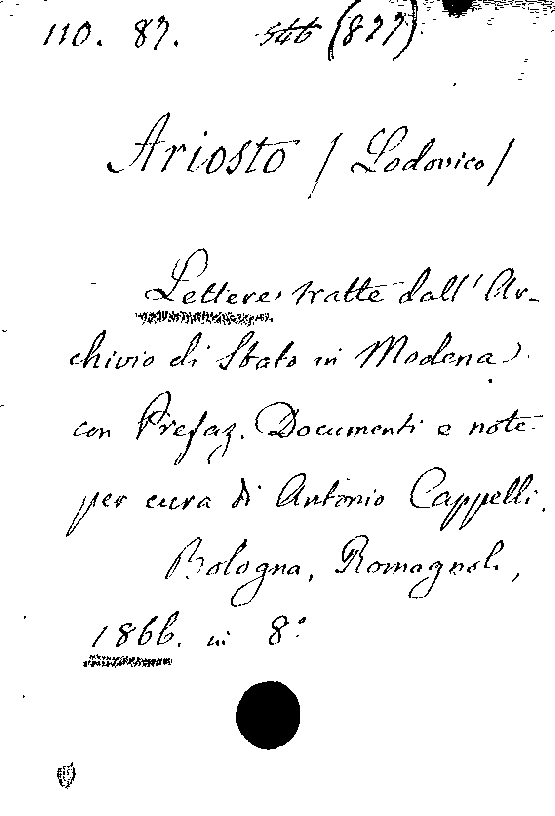 110. 87. 546 (877)
Ariosto / Lodovico /
Lettere tratte dall' Ar-
chivio di Stato in Modena
con Prefaz. Documenti e note
per cura di Antonio Cappelli.
Bologna, Romagnoli,
1866. in 8°